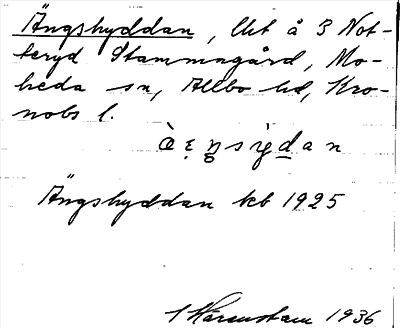 Ängshyddan, lht å 3 Not-
teryd Stammagård, Mo-
heda sn, Allbo hd, Kro-
nobs l.
Ängshyddan kb 1925
Härenstam 1936